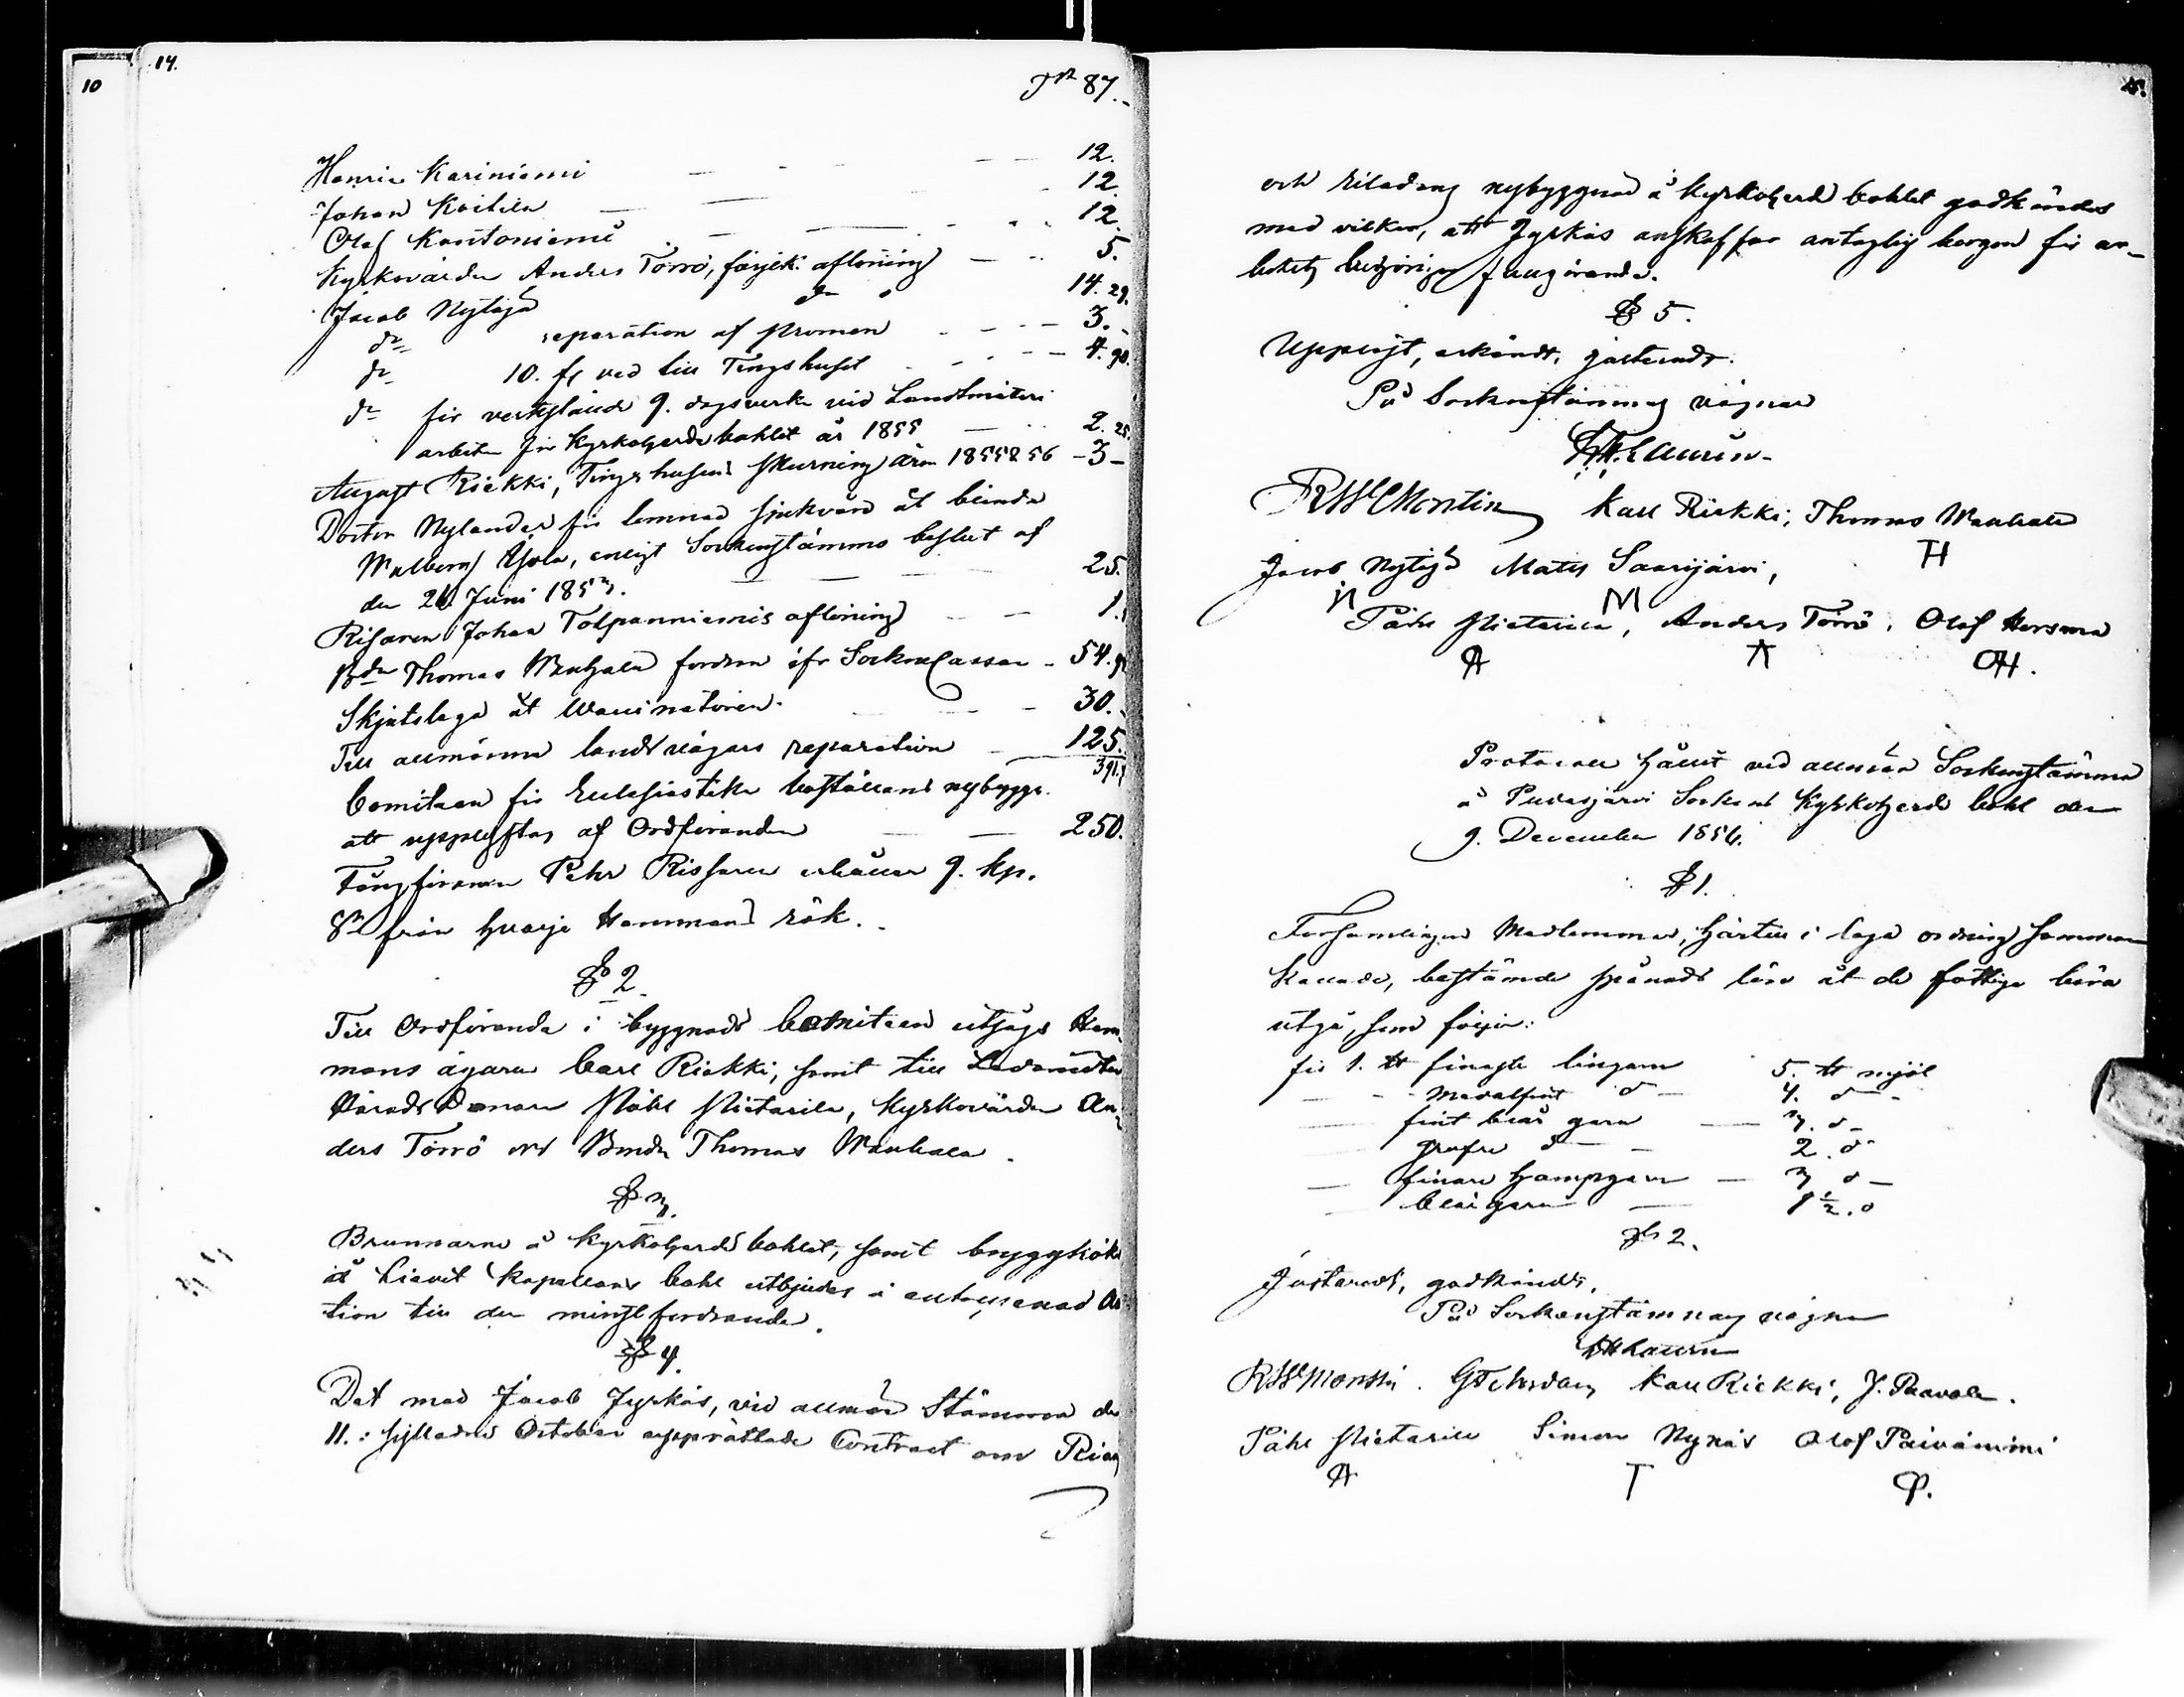 10
14.
Trpt 87.
Henric Kariniemi — 12.
Johan Koitila — 12.
Olof Kantoniemi — 12.
Kyrkovärden Anders Törrö, förjek. aflöning — 5.
Jacob Nytäjä do 14. 29.
do reparation af 3.
do 10. fr ved till Tingshuset — 4. 90.
do för verkstälde 9. dagsverke vid Landtmäteri
arbeten för Kyrkoherdebohlet år 1855 — 2. 25.
August Riekki, Tingshusets skurning åren 1855 & 56 — 3 —
Doctor Nylander för lemnad sjukvård åt blinda
Wallberg enligt Sockenstämmo beslut af
den 26 Juni 1853. 25.
Rifaren Johan Tolpanniemis aflöning — 1.
Bdn Thomas Wanhala fordran ifr Sockne Cassan — 54.
Skjutslega åt Waccinatören. — 30.
Till allmänna landsvägars reparation — 125.
391.
Comiteen för Ecclesiastike boställens nybyggn.
att upplyftas af Ordföranden — 250.
Fångföraren Pehr Rissanen erhåller 9. kp.
Sr från hvarje Hemmans rök.
§ 2.
Till Ordförande i byggnads Comiteen utsågs Hem-
mans ägaren Carl Riekki, samt till Ledamöter
Härads Domaren Påhl Nietarila, Kyrkovärden An-
ders Törrö och Bonden Thomas Wanhala.
§ 3.
Brunnarne å Kyrkoherdsbohlet, samt bryggköket
å Lievit Kapellans bohl utbjudes å entreprenad Au-
tion till den minstfordrande.
§ 4.
Det med Jacob Jyrkäs, vid allmän Stämma den
11. sistledne October upprättade Contract om Rians
15.
och nybyggnad å Kyrkoherde bohlet godkändes
med vilkor, att Jyrkäs anskaffar antaglig borgen för ar-
betets behöriga fullgörande.
§ 5.
Uppläst, erkändt, justeradt.
På Sockenstämmans vägnar
Laurin
R W Montin Karl Riekki, Thomas Wanhala
TH
Jacob Nytäjä Mats Saarijärvi,
M
Påhl Nietarila, Anders Törrö, Olof Hersma
A A OH.
Protocoll hållit vid allmän Sockenstämma
å Pudasjärvi Sockens Kyrkoherde bohl den
9. December 1856.
§ 1.
Församlingens Medlemmar, härtill i laga ordning samman
kallade, bestämde spånads lön åt de fattige böra
utgå, som följer:
för 1. ℔ finaste lingarn 5. ℔ mjöl
— — Medelfint do — 4. do —
— fint blår garn — 3. do —
— grofre do — 2. do
— finare hampgarn — 3 do —
— blårgarn — 1½. do
§ 2.
Justeradt, godkändt,
På Sockenstämmans vägnar
Laurin
R W Montin. Karl Riekki, J. Paavola.
Påhl Nietarila Simon Nynäs Olof Päiväniemi
A T P.